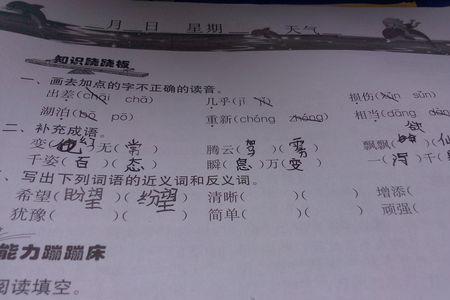 月 日 星期 天气
知识跷跷板
一、画去加点的字不正确的读音。
出差(chāi chā) 几乎(jī 损伤(sǔn sūn)
湖泊(bō pō) 重新(chóng zhóng) 相当(dāng
二、补充成语。
变(幻)无(常) 腾云(驾)(雾) 飘飘(欲)(仙
千姿(百)(态) 瞬(息)万(变) 一(泻)千(
、写出下列词语的近义词和反义词。
希望(盼望)(纷望) 清晰( )( ) 增添(
犹豫( )( ) 简单( )( ) 顽强(
能力蹦蹦床
阅读填空。